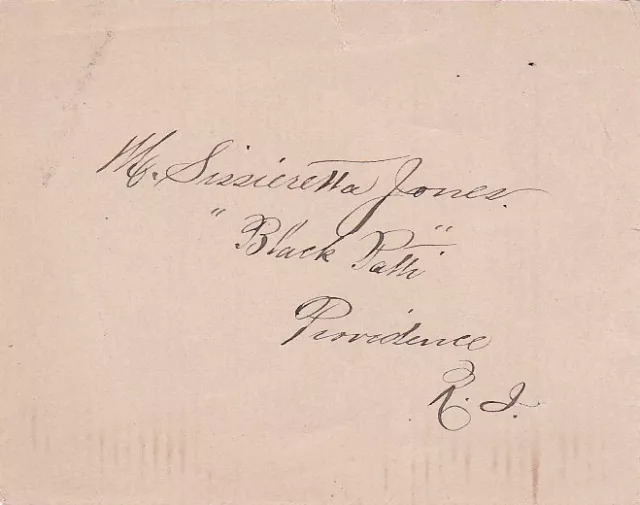 M. Sissieretta Jones.
"Black Patti"
Providence
R. I.